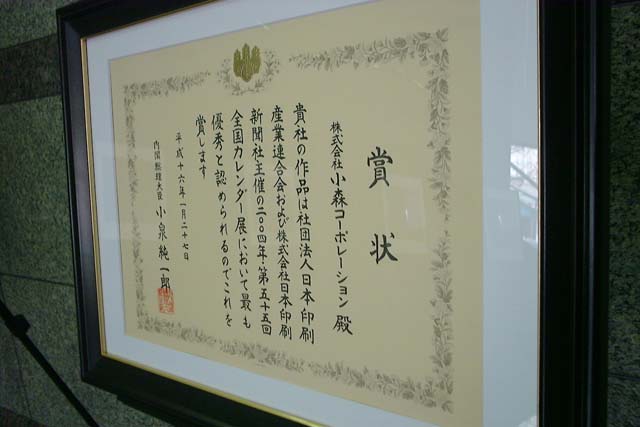 賞状
株式会社小森コーポレーション殿
貴社の作品は社団法人日本印刷
産業連合会および株式会社日本印刷
新聞社主催の二〇〇四年・第五十五回
全国カレンダー展において最も
優秀と認められるのでこれを
賞します
平成十六年一月二十七日
内閣総理大臣 小泉純一郎